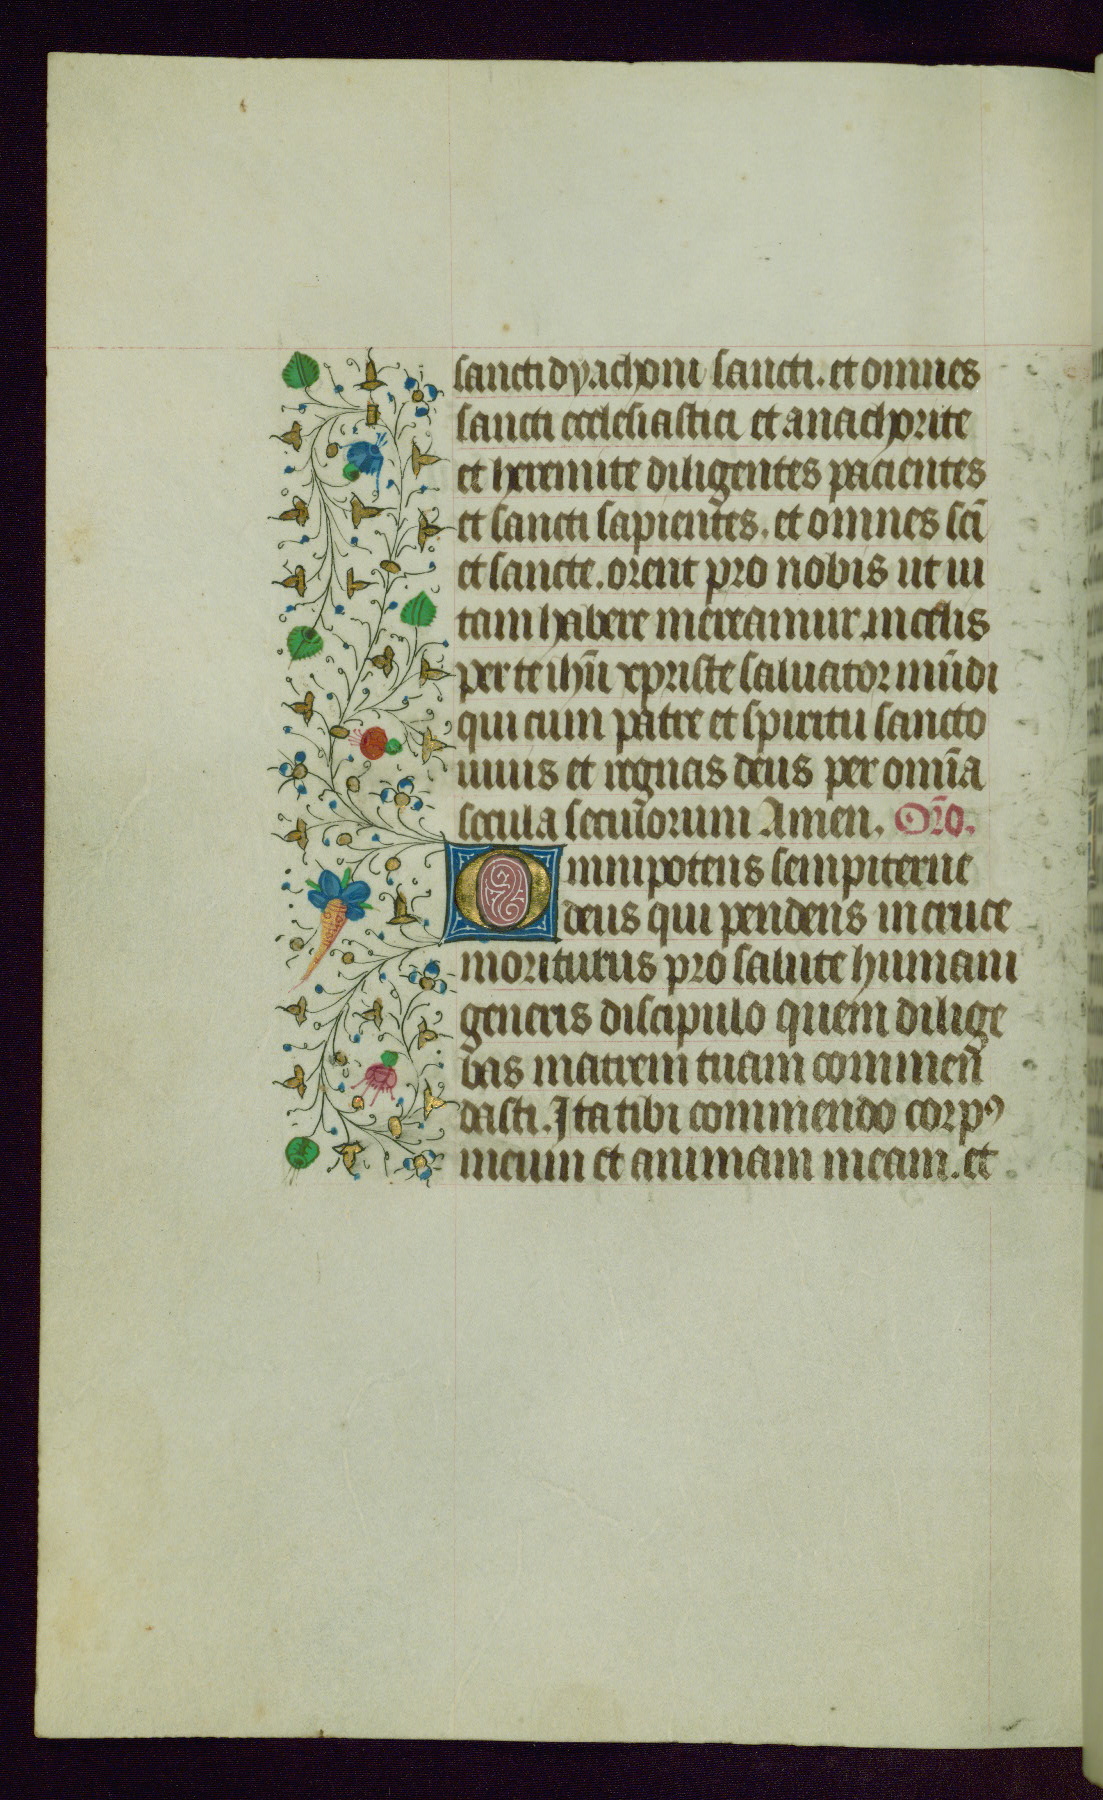 sancti dyachoni sancti. et omnes
sancti ecclesiastici et anachorite
et heremite diligentes pacientes
et sancti sapientes. et omnes scī
et sancte. orent pro nobis ut ui
tam habere mereamur in celis
per te ihū xpriste saluator mūdi
qui cum patre et spiritu sancto
uiuis et regnas deus per omīa
secula seculorum Amen. Or̄o.
Omnipotens sempiterne
deus qui pendens in cruce
moriturus pro salute humani
generis discipulo quem dilige
bas matrem tuam commen̄
dasti. Ita tibi commendo corpꝰ
meum et animam meam. et